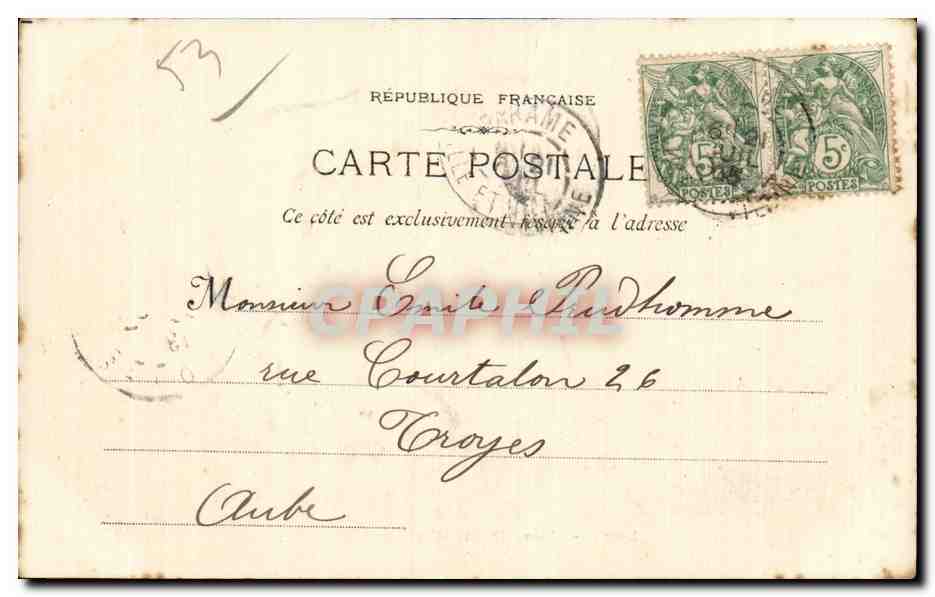 53
RÉPUBLIQUE FRANÇAISE
CARTE POSTALE
Ce côté est exclusivement réservé à l'adresse
PARAMÉ
ILLE ET VILAINE
5c 5c
POSTES POSTES
CPAPHIL
Monsieur Emile Prudhomme
rue Courtalon 26
Troyes
Aube